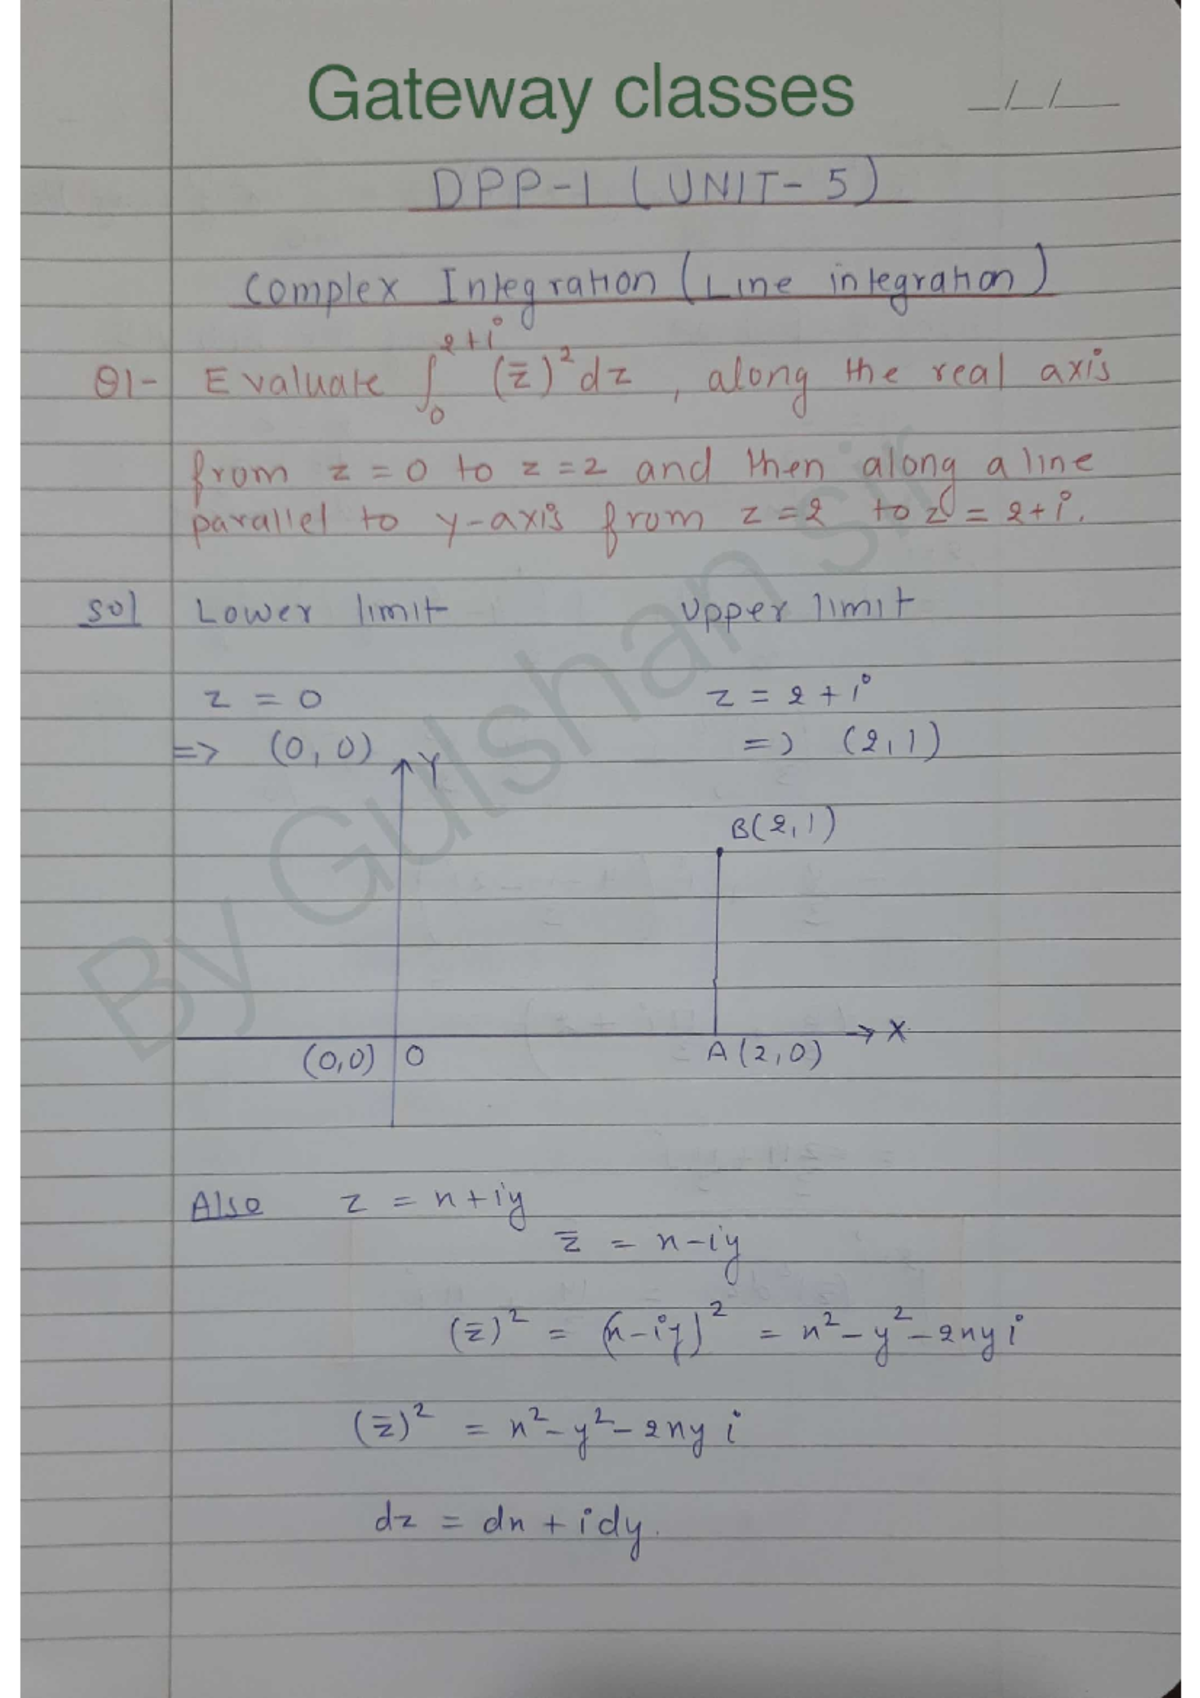 Gateway classes
_/_/__
DPP-1 (UNIT-5)
Complex Integration (Line integration)
Q1- Evaluate ∫₀^{2+i} (z̄)² dz, along the real axis
from z = 0 to z = 2 and then along a line
parallel to y-axis from z = 2 to z = 2+i.
Sol Lower limit Upper limit
z = 0 z = 2 + i
=> (0, 0) => (2, 1)
Y
B(2, 1)
X
(0,0) O A (2, 0)
Also z = x + iy
z̄ = x - iy
(z̄)² = (x - iy)² = x² - y² - 2xy i
(z̄)² = x² - y² - 2xy i
dz = dx + i dy.
By Gulshan sir